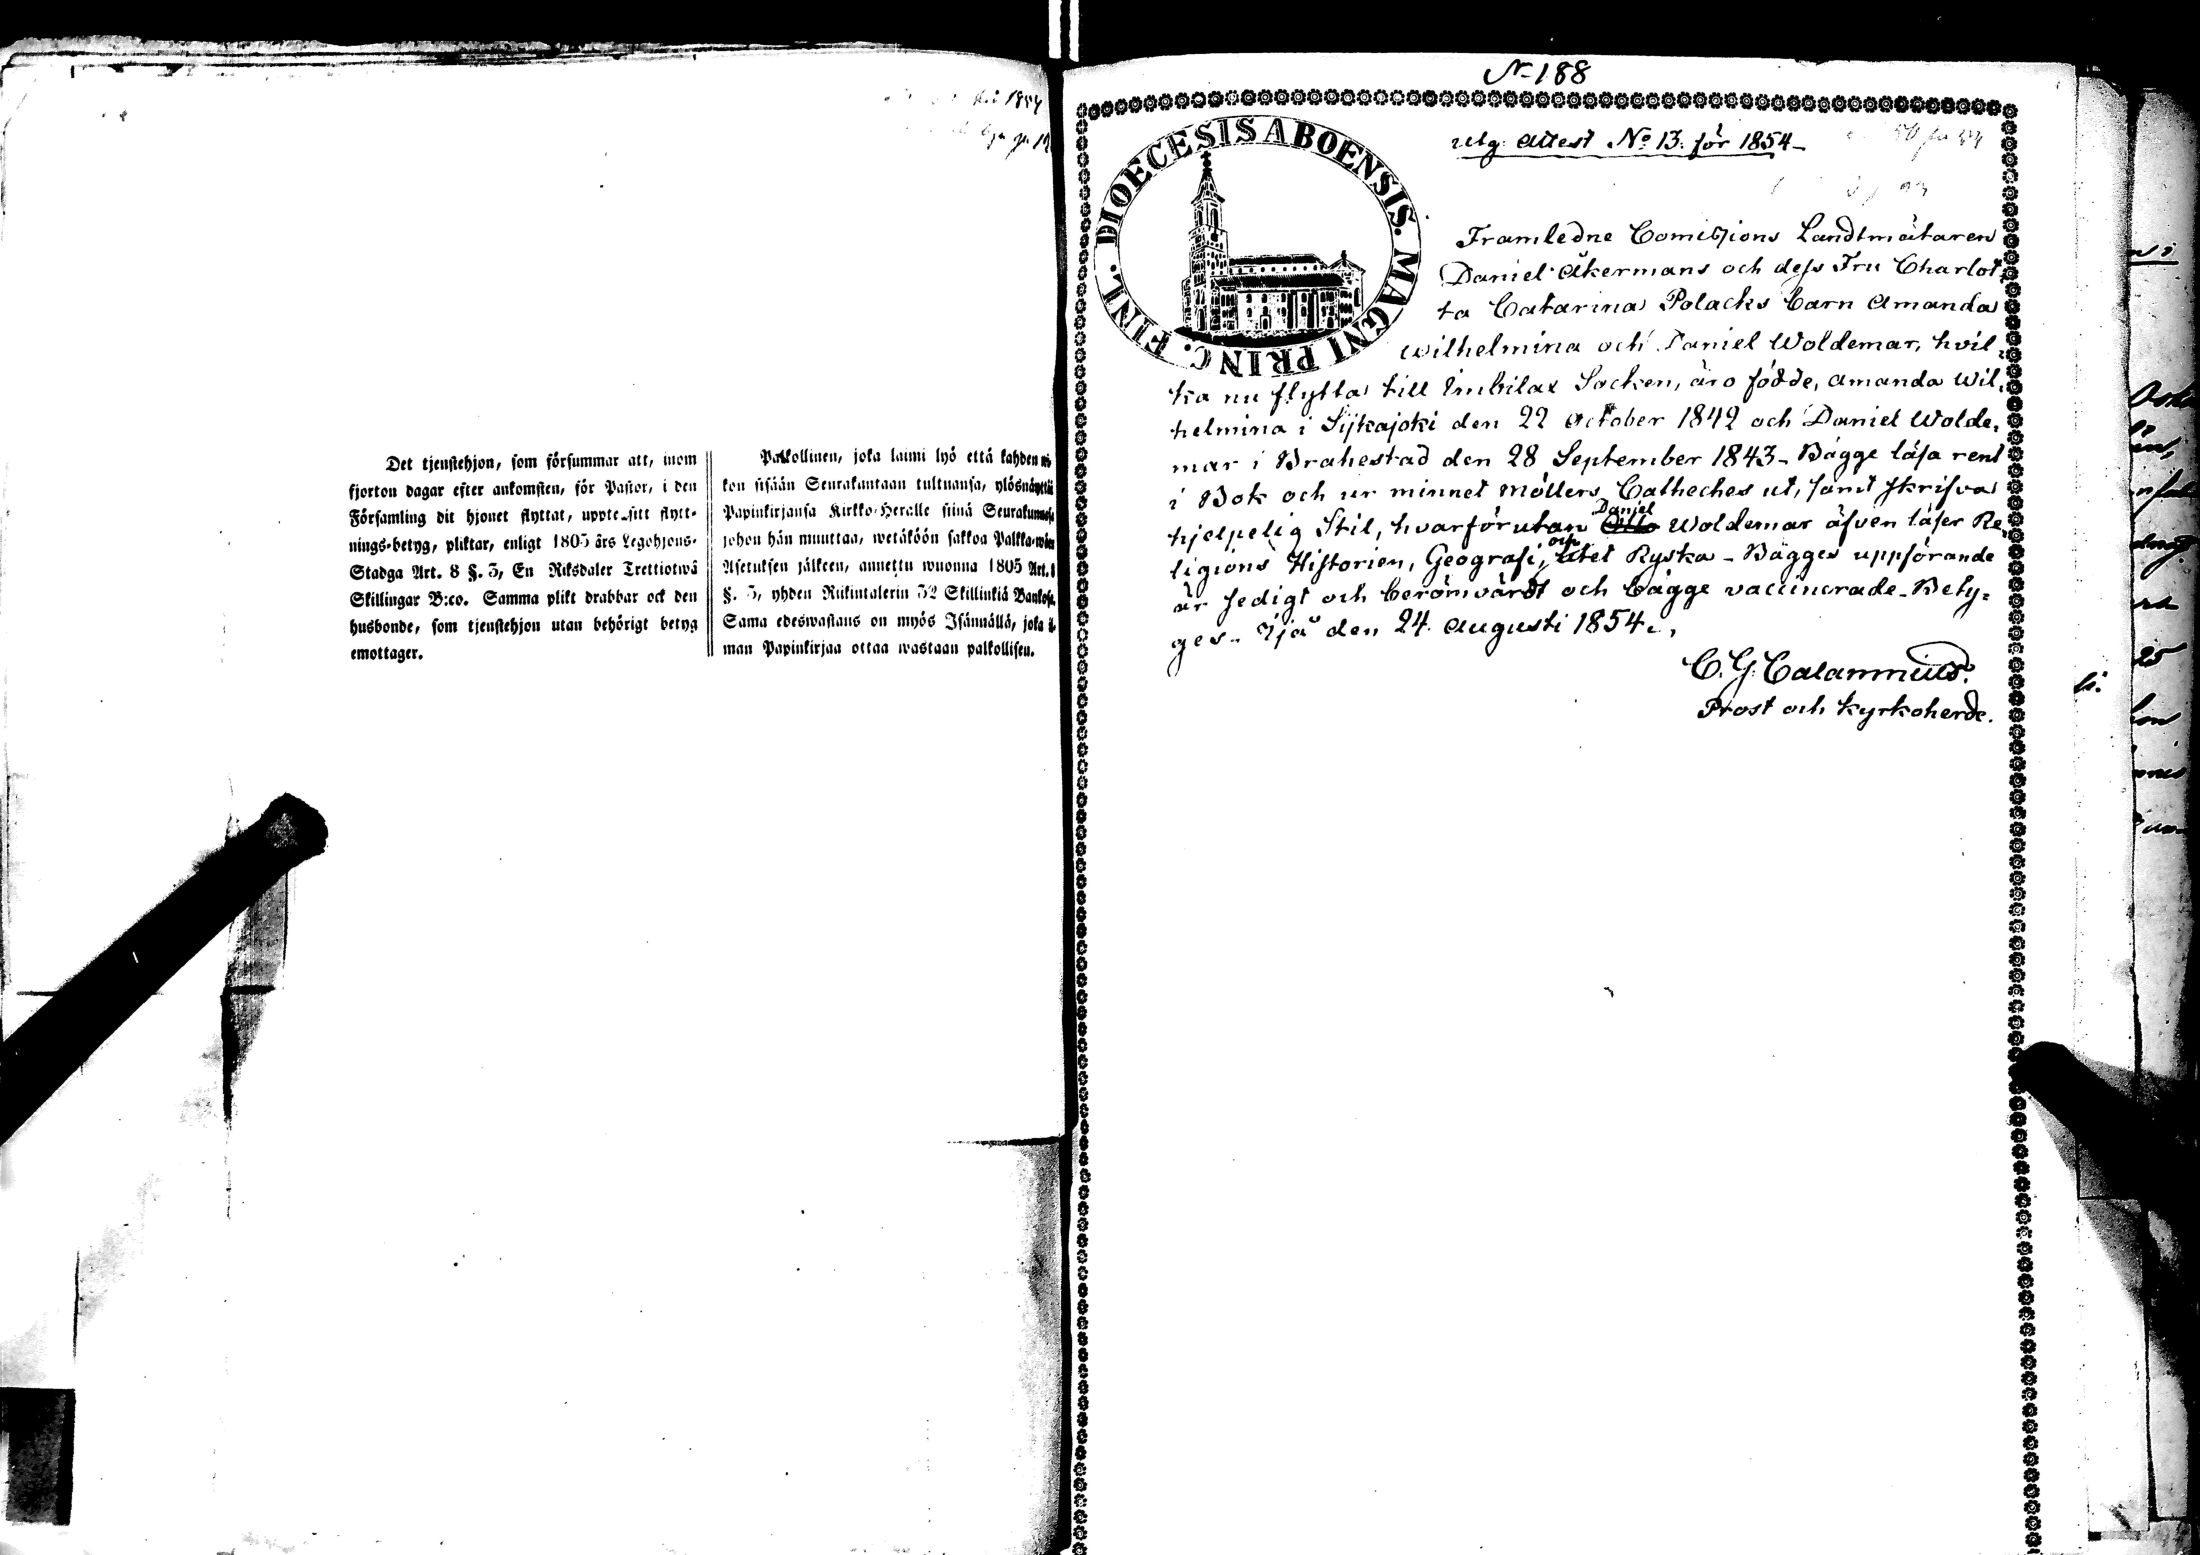 1854
Det tjenstehjon, som försummar att, inom
fjorton dagar efter ankomsten, för Pastor, i den
Församling dit hjonet flyttat, uppte sitt flytt-
nings-betyg, pliktar, enligt 1805 års Legohjons-
Stadga Art. 8 §. 3, En Riksdaler Trettiotwå
Skillingar B:co. Samma plikt drabbar ock den
husbonde, som tjenstehjon utan behörigt betyg
emottager.
Palkollinen, joka laimi lyö että kahden wii-
kon sisään Seurakuntaan tultuansa, ylösnäyttää
Papinkirjansa Kirkko-Heralle siinä Seurakunnassa
johon hän muuttaa, wetäköön sakkoa Palkka-wäen
Asetuksen jälkeen, annettu wuonna 1805 Art. 8
§. 3, yhden Riikintalerin 32 Skillinkiä Bankosa.
Sama edeswastaus on myös Isännällä, joka il-
man Papinkirjaa ottaa wastaan palkollisen.
N 188
DIOECESIS ABOENSIS. MAGNI PRINC. FINL.
utg. Attest No 13. för 1854-
Framledne Comissions Landtmätaren
Daniel Åkermans och dess Fru Charlot-
ta Catarina Polacks barn Amanda
Wilhelmina och Daniel Woldemar, hvil-
ka nu flytta till Imbilax Socken, äro födde, Amanda Wil-
helmina i Sijkajoki den 22 October 1842 och Daniel Wolde-
mar i Brahestad den 28 September 1843- Bägge läsa rent
i Bok och ur minnet Möllers Catheches ut, samt skrifva
hjelpelig Stil, hvarförutan Daniel Woldemar äfven läser Re-
ligions Historien, Geografi, och Ryska - Bägges uppförande
är sedigt och berömvärdt och bägge vaccinerade. Bety-
ges. Ijå den 24. Augusti 1854.
C. G. Calamnius.
Prost och kyrkoherde.